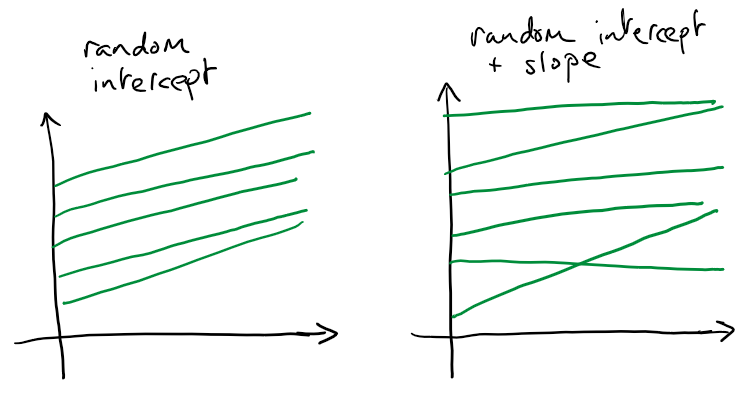 random
intercept
random intercept
+ slope